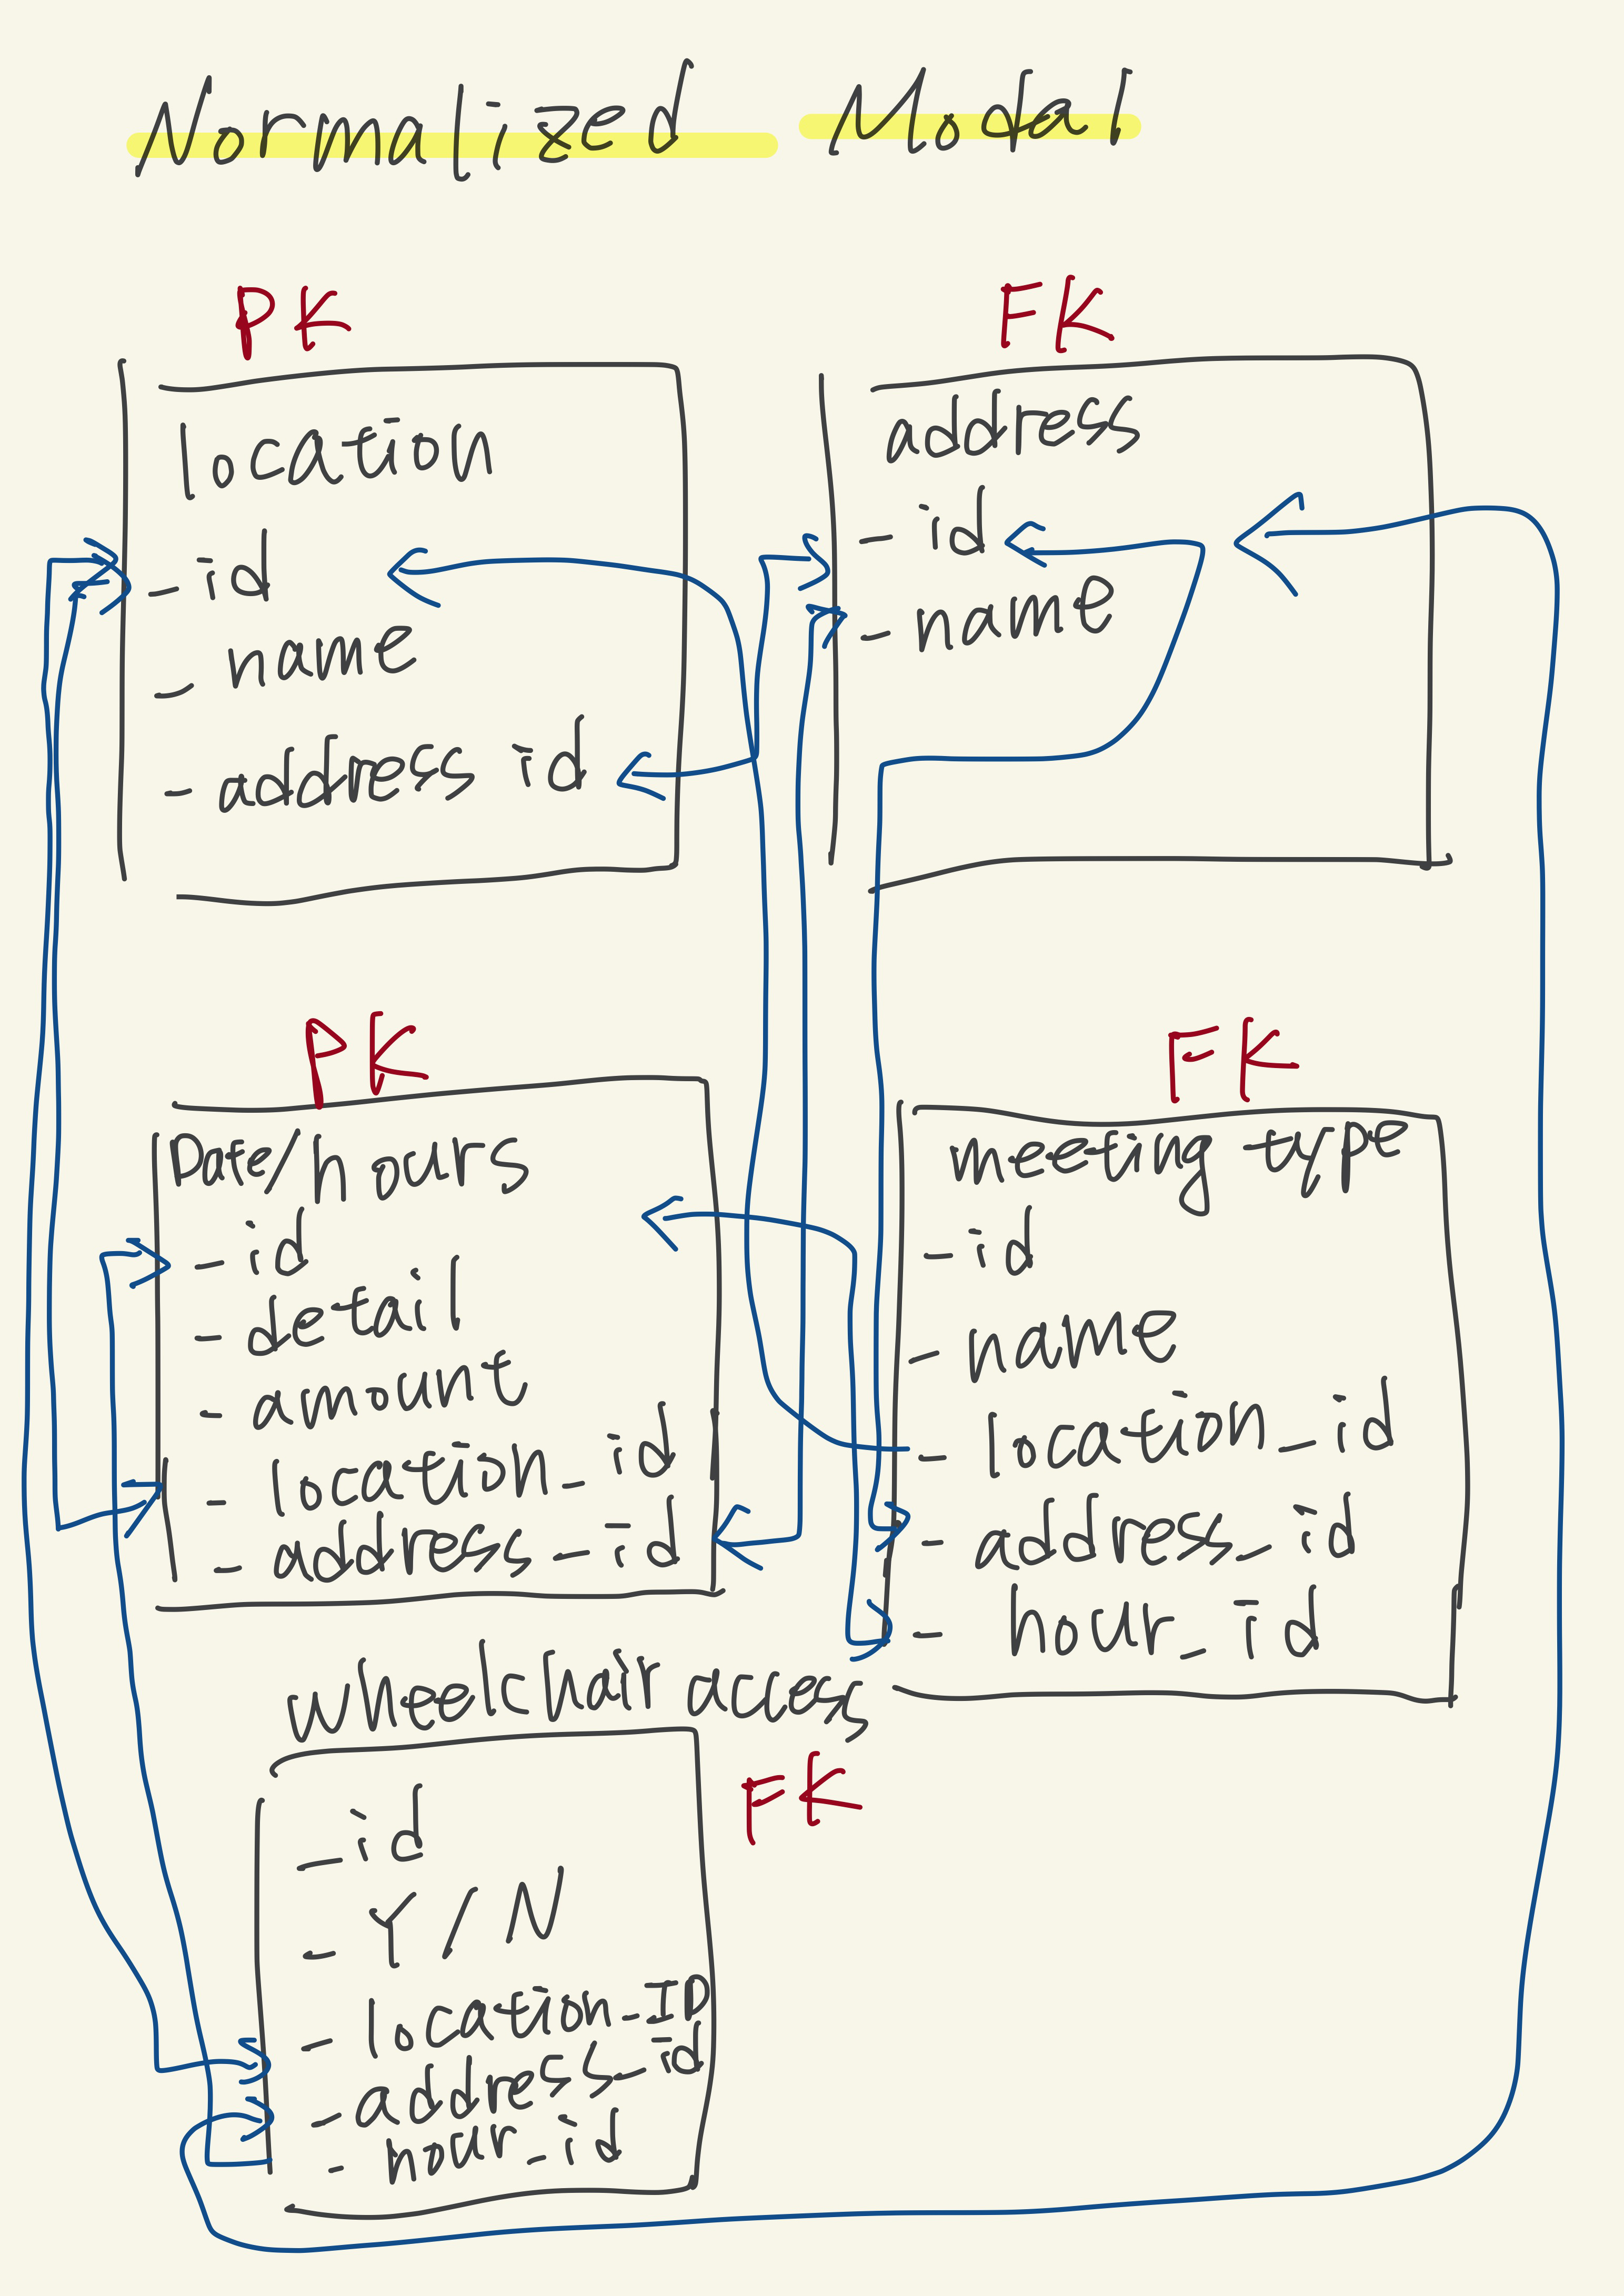 Normalized Modal
PK
location
- id
- name
- address id
FK
address
- id
- name
PK
Date/hours
- id
- detail
- amount
- location_id
- address_id
FK
meeting type
- id
- name
- location_id
- address_id
- hour_id
wheelchair access
FK
- id
- Y/N
- location_ID
- address_id
- hour_id